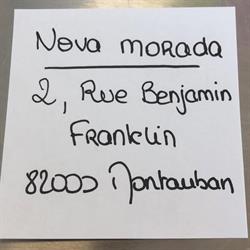 Nova morada
2, Rue Benjamin
Franklin
82000 Montauban